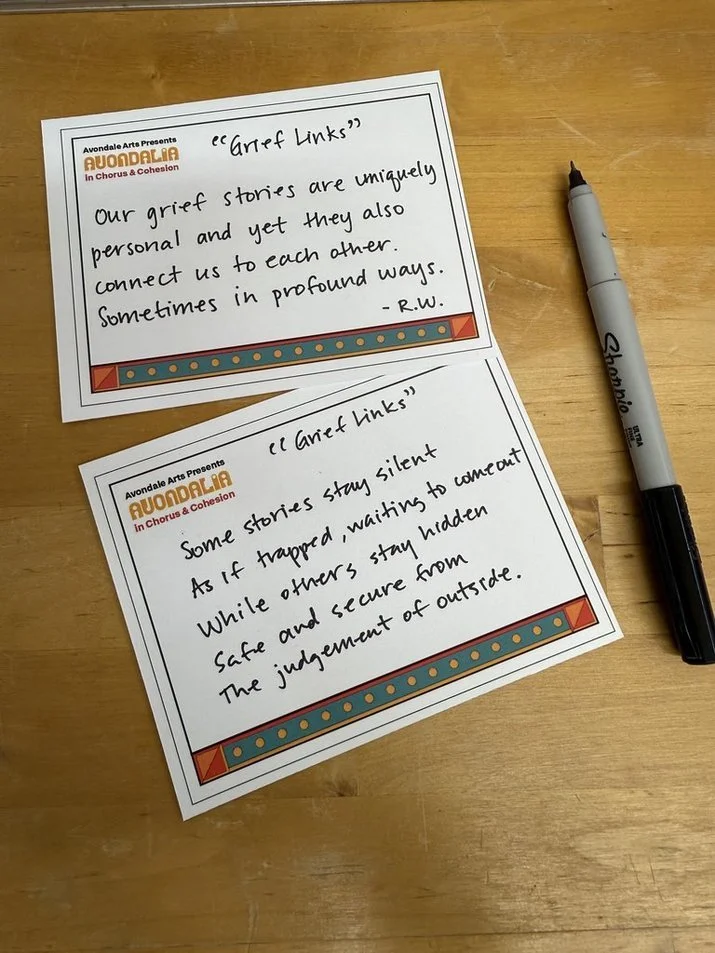 Avondale Arts Presents
AVONDALIA
in Chorus & Cohesion
"Grief Links"
Our grief stories are uniquely
personal and yet they also
connect us to each other.
Sometimes in profound ways.
- R.W.
Avondale Arts Presents
AVONDALIA
in Chorus & Cohesion
"Grief Links"
Some stories stay silent
As if trapped, waiting to come out
While others stay hidden
Safe and secure from
The judgement of outside.
Sharpie
ULTRA
FINE